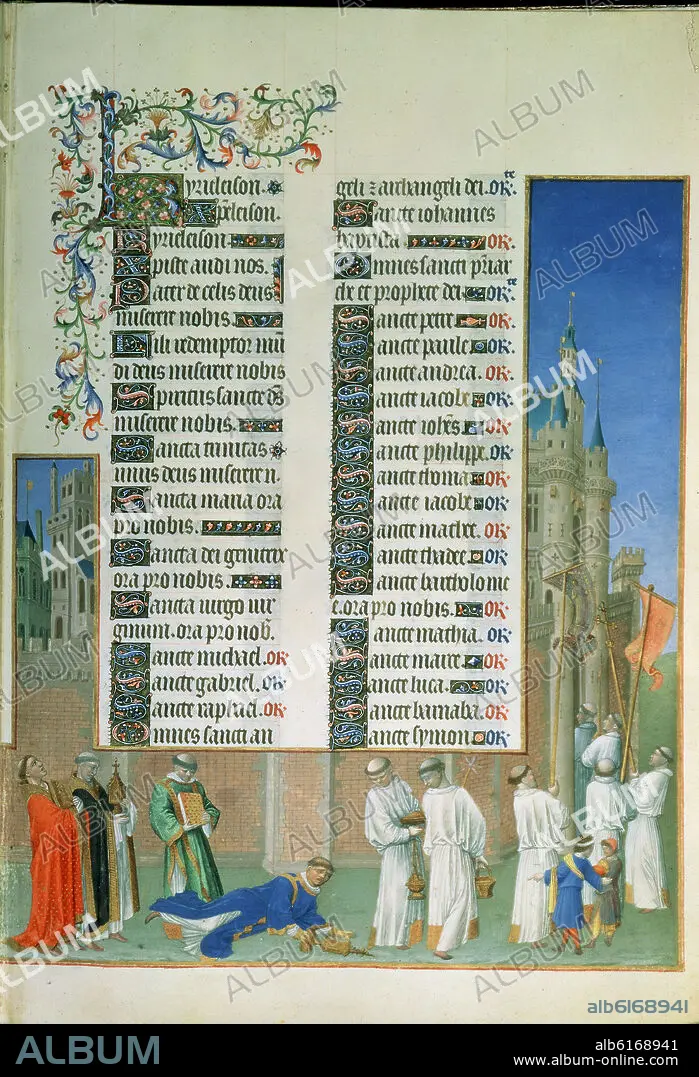 Kyrieleison.
Xpeleison.
Kyrieleison.
Xpiste audi nos.
Pater de celis deus
miserere nobis.
Fili redemptor mū
di deus miserere nobis
Spiritus sancte ds̄
miserere nobis.
Sancta trinitas
unus deus miserere n.
Sancta maria ora
pro nobis.
Sancta dei genitrix
ora pro nobis.
Sancta virgo vir
ginum. ora pro nob.
Sancte michael. or
Sancte gabriel. or
Sancte raphael. or
Omnes sancti an
geli ⁊ archangeli dei. or
Sancte iohannes
baptista or.
Omnes sancti pr̄iar
che et prophete dei or
Sancte petre or.
Sancte paule or.
Sancte andrea. or.
Sancte iacobe or.
Sancte ioh̄es or.
Sancte philippe. or
Sancte thoma or.
Sancte iacobe or.
Sancte mathee. or
Sancte thadee or
Sancte bartholome
e. ora pro nobis. or
Sancte mathia. or.
Sancte marce or.
Sancte luca. or.
Sancte barnaba. or
Sancte symon or
ALBUM
alb6168941
ALBUM
alb6168941
www.album-online.com